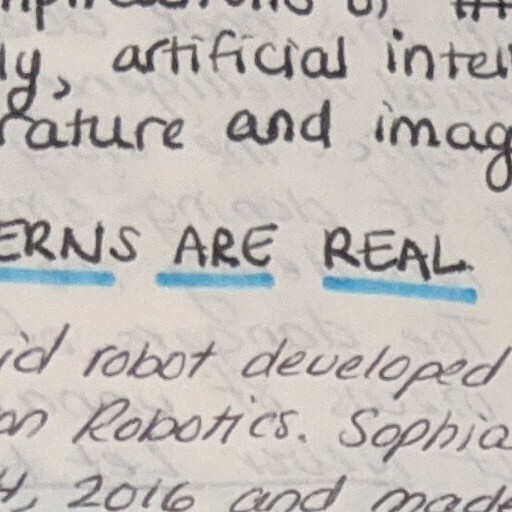 ly, artificial intel
rature and imag
ERNS ARE REAL
id robot developed
on Robotics. Sophia
2016 and made